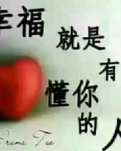 幸福
就是
有
懂你
的人